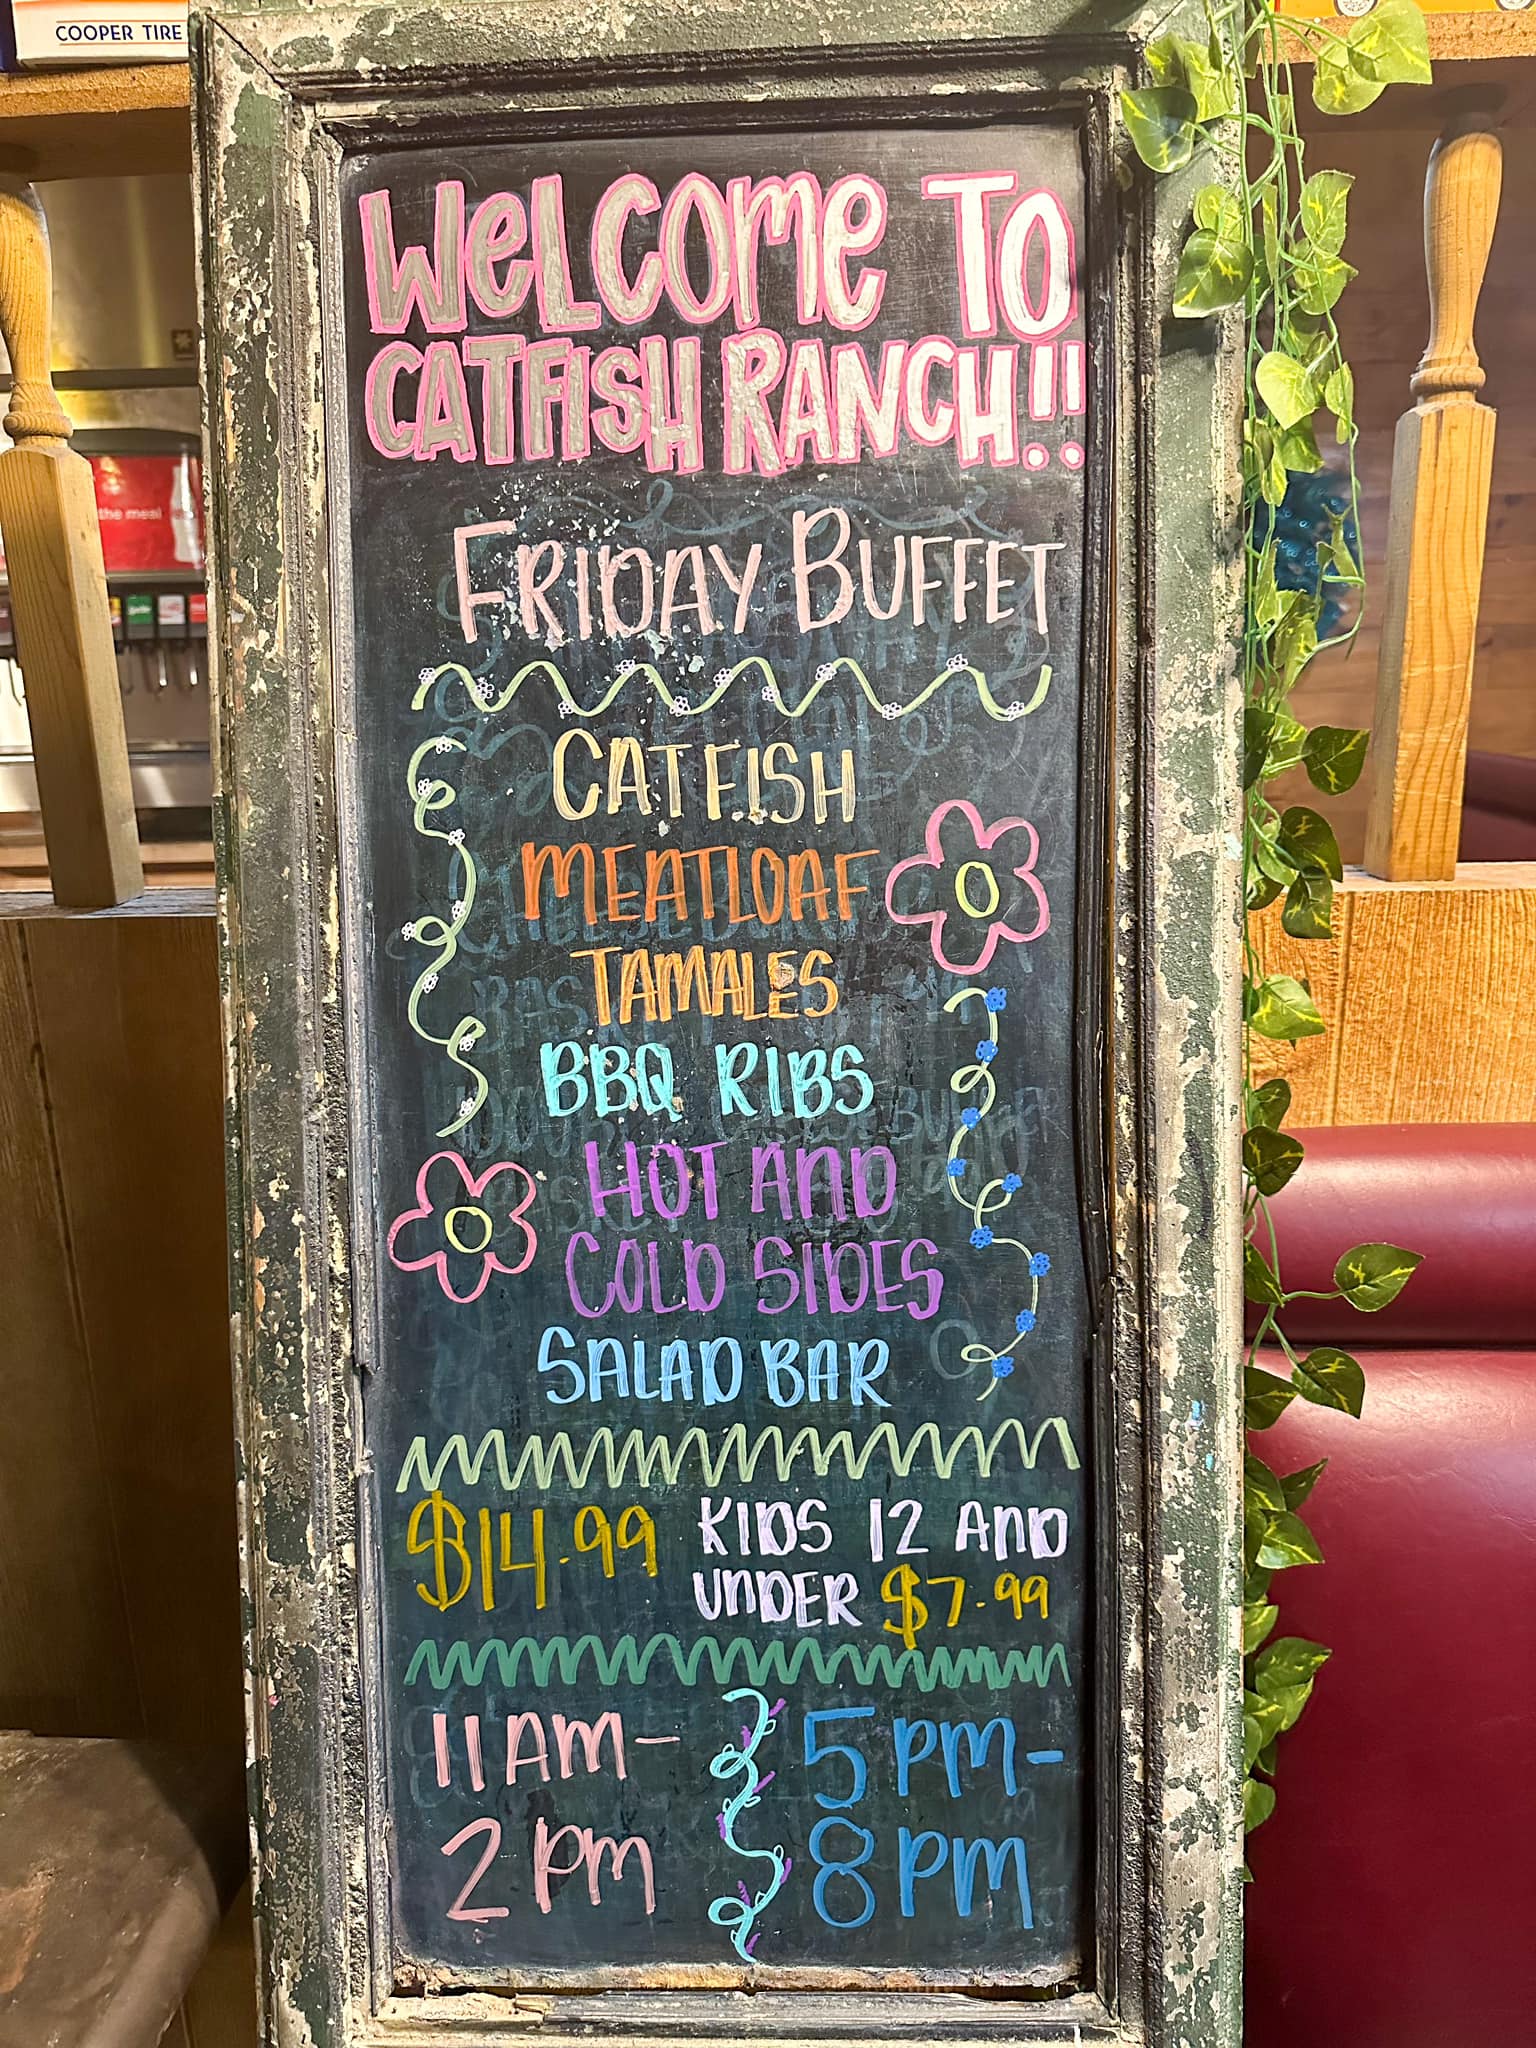 COOPER TIRE
WeLCOme TO
CATFISH RANCH!!
the meal
FRIDAY BUFFET
CATFISH
MEATLOAF
TAMALES
BBQ RIBS
HOT AND
COLD SIDES
SALAD BAR
$14.99 KIDS 12 AnD
UnDER $7.99
11 Am - 5 Pm -
2 Pm 8 Pm